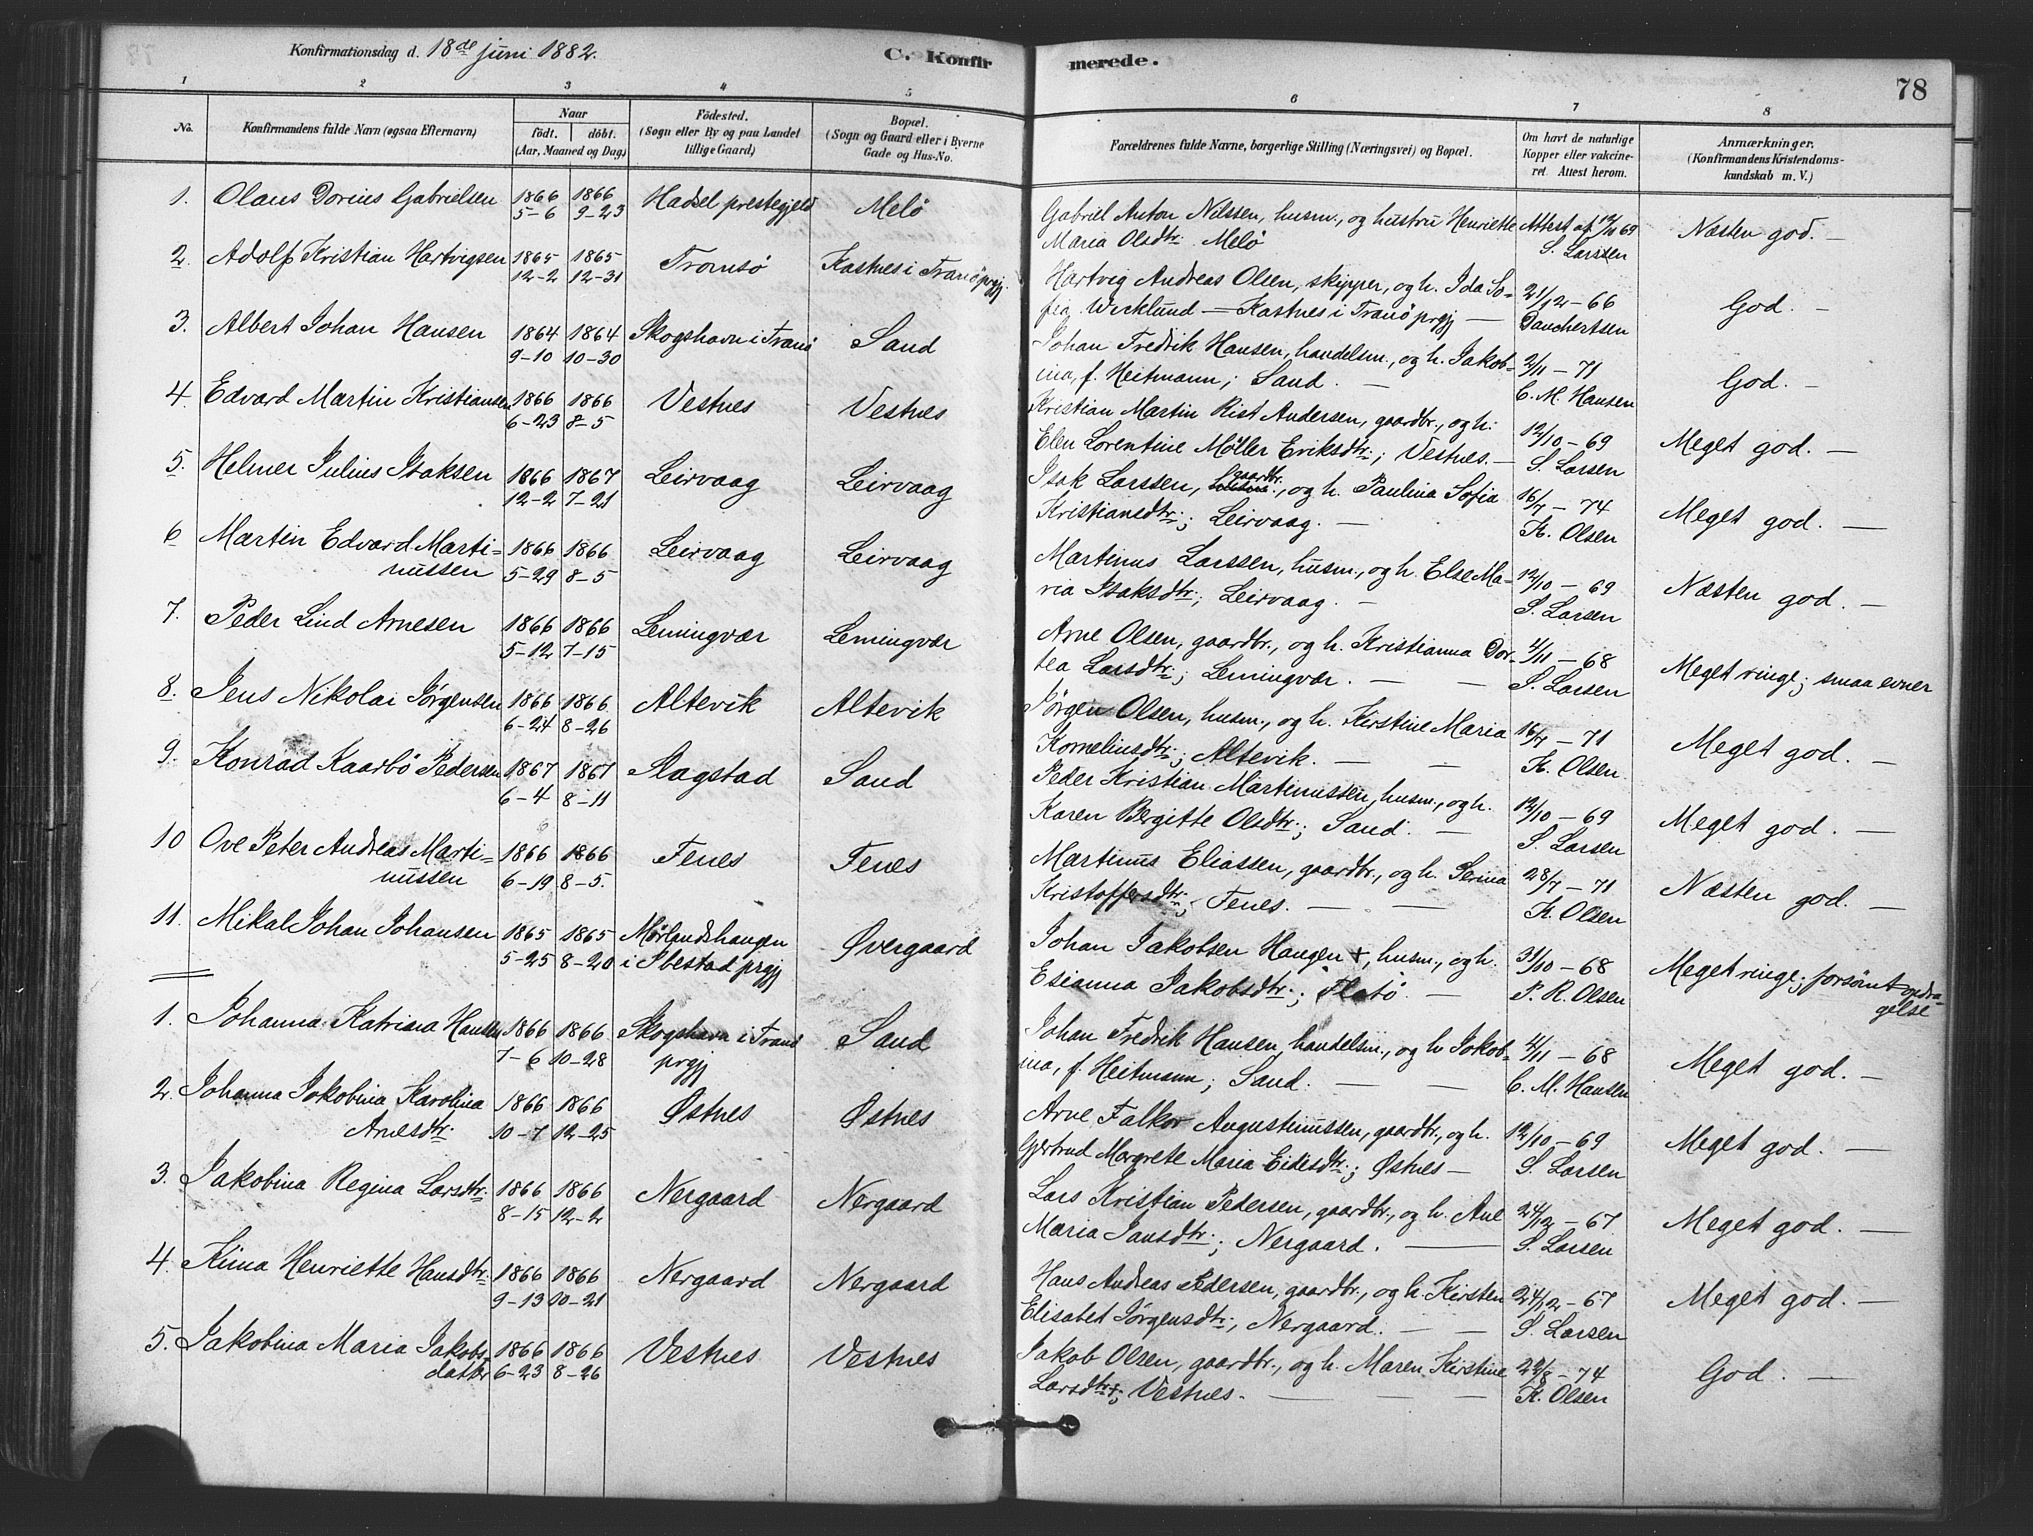 Konfirmationsdag d. 18de juni 1882.
C. Konfirmerede.
78
1 2 3 4 5 6 7 8
No. Konfirmandens fulde Navn (ogsaa Efternavn)
Naar født. døbt. (Aar, Maaned og Dag.)
Fødested. (Sogn eller By og paa Landet tillige Gaard.)
Bopæl. (Sogn og Gaard eller i Byerne Gade og Hus-No.
Forældrenes fulde Navne, borgerlige Stilling (Næringsvei) og Bopæl.
Om havt de naturlige Kopper eller vakcineret. Attest herom.
Anmærkninger. (Konfirmandens Kristendomskundskab m. V.)
1. Olaus Dorius Gabrielsen 1866 5-6 1866 9-23 Hadsel prestegjeld Melö Gabriel Anton Nilssen, husm., og hustru Henriette Attest af 12/11 69 Næsten god. —
Maria Olsdtr. Melö S. Larsen
2. Adolf Kristian Hartvigsen 1865 12-2 1865 12-31 Tromsö Kastnes i Tranö prgj. Hartvig Andreas Olsen, skipper, og h. Ida So- 21/12-66 God. —
fia Wicklund — Kastnes i Tranö prgj — Dauchertsen
3. Albert Johan Hansen 1864 9-10 1864 10-30 Skogshavn i Tranö Sand Johan Fredrik Hansen, handelsm., og h. Jakob- 2/11-71 God. —
ina, f. Heitmann; Sand. — C. M. Hansen
4. Edvard Martin Kristiansen 1866 6-23 1866 8-5 Vestnes Vestnes Kristian Martin Rist Andersen, gaardbr., og h. 12/10-69 Meget god. —
Elen Lorentine Møller Eriksdtr.; Vestnes. — S. Larsen
5. Helmer Julius Isaksen 1866 12-2 1867 7-21 Leirvaag Leirvaag Isak Larssen, gaardbr., og h. Paulina Sofia 16/7-74 Meget god. —
Kristiansdtr.; Leirvaag. — K. Olsen
6 Martin Edvard Marti- 1866 5-29 1866 8-5 Leirvaag Leirvaag Martinus Larssen, husm., og h. Else Ma- 12/10-69 Næsten god. —
nussen ria Isaksdtr.; Leirvaag. — S. Larsen
7. Peder Lind Arnesen 1866 5-12 1866 7-15 Lemingvær Lemingvær Arne Olsen, gaardbr., og h. Kristianna Dor- 4/11-68 Meget ringe; smaa evner
tea Larsdtr.; Lemingvær. — — S. Larsen
8. Jens Nikolai Jørgensen 1866 6-24 1866 8-26 Altevik Altevik Jørgen Olsen, husm., og h. Kirstine Maria 16/7-71 Meget god. —
Korneliusdtr.; Altevik. — — K. Olsen.
9. Konrad Kaarbö Pedersen 1867 6-4 1867 8-11 Slagstad Sand Peder Kristian Martinussen, husm., og h. 12/10-69 Meget god. —
Karen Bergitte Olsdtr.; Sand. — S. Larsen
10 Ove Peter Andreas Marti- 1866 6-19 1866 8-5. Fenes Fenes Martinus Eliassen, gaardbr., og h. Serina 28/7-71 Næsten god. —
nussen Kristoffersdtr.; Fenes. — — K. Olsen
11. Mikal Johan Johansen 1865 5-25 1865 8-20 Mørlandshaugen i Ibestad prgj Øvergaard Johan Jakobsen Haugen +, husm., og h. 31/10-68 Meget ringe; forsømt opdragelse
Esianna Jakobsdtr.; Flatö. — P. R. Olsen
1. Johanna Katrina Hansen 1866 7-6 1866 10-28 Skogshavn i Tranö prgj Sand Johan Fredrik Hansen, handelsm., og h. Jakob- 4/11-68 Meget god. —
ina, f. Heitmann; Sand. — — C. M. Hansen
2. Johanna Jakobina Karolina 1866 10-7 1866 12-25 Østnes Østnes Arne Falkor Augustinussen, gaardbr., og h. 12/10-69 Meget god. —
Arnesdtr. Gjertrud Margrete Maria Eidesdtr.; Østnes — S. Larsen
3. Jakobina Regina Larsdtr. 1866 8-15 1866 12-2 Nergaard Nergaard Lars Kristian Pedersen, gaardbr., og h. Ane 24/12-67 Meget god. —
Maria Jansdtr.; Nergaard. — S. Larsen
4. Henriette Hansdtr. 1866 9-13 1866 10-21 Nergaard Nergaard Hans Andreas Pedersen, gaardbr., og h. Kirsten 24/12-67 Meget god. —
Elisabet Jørgensdtr., Nergaard. — — S. Larsen
5. Jakobina Maria Jakobs- 1866 6-23 1866 8-26 Vestnes Vestnes Jakob Olsen, gaardbr., og h. Maren Kirstine 29/8-74 God. —
datter Larsdtr+; Vestnes. — — — K. Olsen